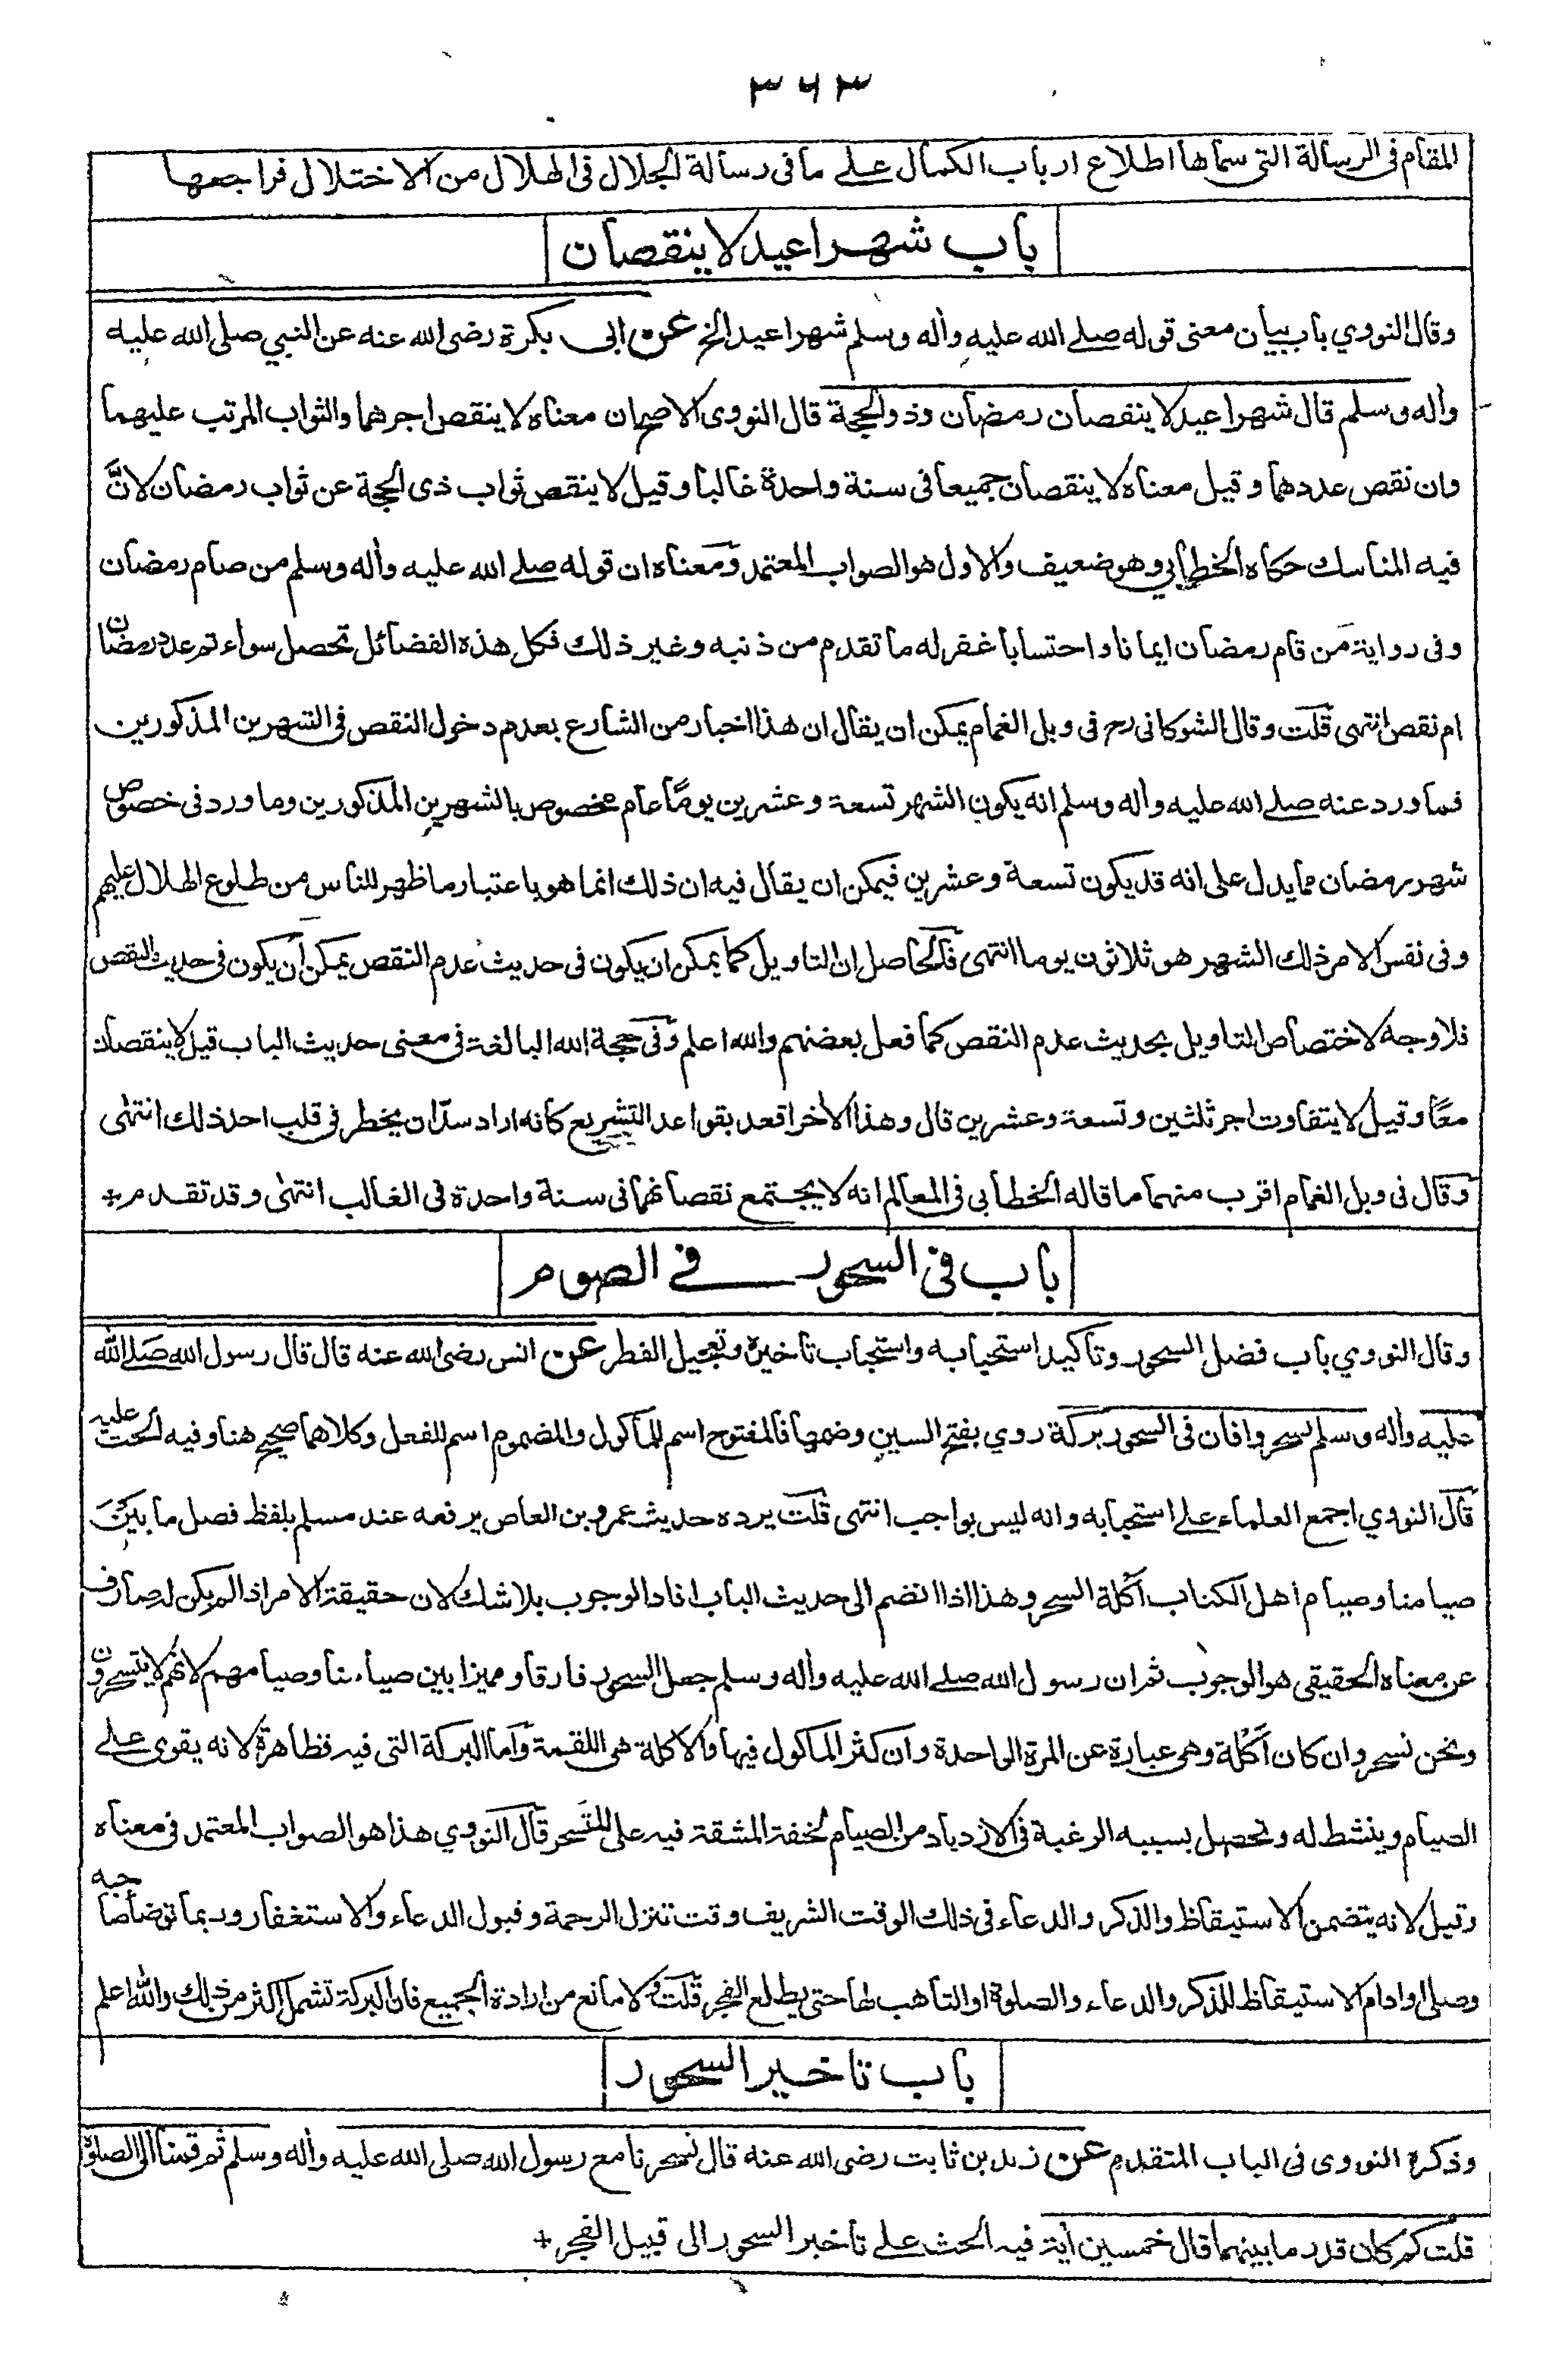 ٣٦٣
المقام فى الرسالة التى سماها اطلاع ارباب الكمال على ما فى رسالة الجلال فى الهلال من الاختلال فراجعها
باب شهرا عيد لا ينقصان
وقال النووي باب بيان معنى قوله صلے الله عليه واٰله وسلم شهرا عيد الخ عن ابى بكرة رضى الله عنه عن النبي صلى الله عليه
واٰله وسلم قال شهرا عيد لا ينقصان رمضان وذو الحجة قال النووى الاصح ان معناه لا ينقص اجرهما والثواب المرتب عليهما
وان نقص عددهما وقيل معناه لا ينقصان جميعا فى سنة واحدة غالبا وقيل لا ينقص ثواب ذى الحجة عن ثواب رمضان لانَّ
فيه المناسك حكاه الخطابي وهو ضعيف والاول هو الصواب المعتمد ومعناه ان قوله صلے الله عليه واٰله وسلم من صام رمضان
وفى رواية من قام رمضان ايمانا واحتسابا غفر له ما تقدم من ذنبه وغير ذلك فكل هذه الفضائل تحصل سواء تم عدد رمضان
ام نقص انتهى قلت وقال الشوكانى رح فى وبل الغمام يمكن ان يقال ان هذا اخبار من الشارع بعدم دخول النقص فى الشهرين المذكورين
فما ورد عنه صلے الله عليه واٰله وسلم انه يكون الشهر تسعة وعشرين يومًا عام مخصوص بالشهرين المذكورين وما ورد فى خصوص
شهر رمضان مما يدل على انه قد يكون تسعة وعشرين فيمكن ان يقال فيه ان ذلك انما هو باعتبار ما ظهر للناس من طلوع الهلال عليهم
وفى نفس الامر ذلك الشهر هو ثلاثون يوما انتهى فالحاصل ان التاويل كما يمكن ان يكون فى حديث عدم النقص يمكن ان يكون فى حديث النقص
فلا وجه لاختصاص التاويل بحديث عدم النقص كما فعل بعضهم والله اعلم وفى حجة الله البالغة فى معنى حديث الباب قيل لا ينقصان
معًا وقيل لا يتفاوت اجر ثلثين وتسعة وعشرين قال وهذا الاخر اقعد بقواعد التشريع كانه اراد سدّ ان يخطر فى قلب احد ذلك انتهٰى
وقال فى وبل الغمام اقرب منهما ما قاله الخطابى فى المعالم انه لا يجتمع نقصانهما فى سنة واحدة فى الغالب انتهٰى وقد تقدم +
باب فى السحور فے الصوم
وقال النووي باب فضل السحور وتاكيد استحبابه واستحباب تاخيره وتعجيل الفطر عن انس رضى الله عنه قال قال رسول الله صَلے الله
عليه واٰله وسلم تسحروا فان فى السحور بركة روي بفتح السين وضمها فالمفتوح اسم للماكول والمضموم اسم للفعل وكلاهما صحيح هنا وفيه الحث عليه
قال النووي اجمع العلماء على استحبابه وانه ليس بواجب انتهى قلت يرده حديث عمرو بن العاص يرفعه عند مسلم بلفظ فصل ما بَيْنَ
صيامنا وصيام اهل الكتاب اَكلة السحر وهذا اذا انضم الى حديث الباب افاد الوجوب بلا شك لان حقيقة الامر اذا لم يكن له صارف
عن معناه الحقيقى هو الوجوب ثم ان رسول الله صلے الله عليه واٰله وسلم جعل السحور فارقا ومميزا بين صيامنا وصيامهم لانهم لا يتسحرون
ونحن نسحر وان كان اَكْلة وهى عبارة عن المرة الواحدة وان كثر الماكول فيها والاكلة هى اللقمة وأما البركة التى فيه فظاهرة لانه يقوى على
الصيام وينشط له وتحصل بسببه الرغبة فى الازدياد من الصيام لخفة المشقة فيه على المتسحر قال النووي هذا هو الصواب المعتمد فى معناه
وقيل لانه يتضمن الاستيقاظ والذكر والدعاء فى ذلك الوقت الشريف وقت تنزل الرحمة وقبول الدعاء والاستغفار وربما توضأ صاحبه
وصلى او ادام الاستيقاظ للذكر والدعاء والصلوة او التاهب لها حتى يطلع الفجر قلت ولا مانع من ارادة الجميع فان البركة تشمل اكثر من ذلك والله اعلم
باب تاخير السحور
وذكره النووى فى الباب المتقدم عن زيد بن ثابت رضى الله عنه قال تسحرنا مع رسول الله صلى الله عليه واٰله وسلم ثم قمنا الى الصلوة
قلت كم كان قدر ما بينهما قال خمسين اٰية فيه الحث على تاخير السحور الى قبيل الفجر +